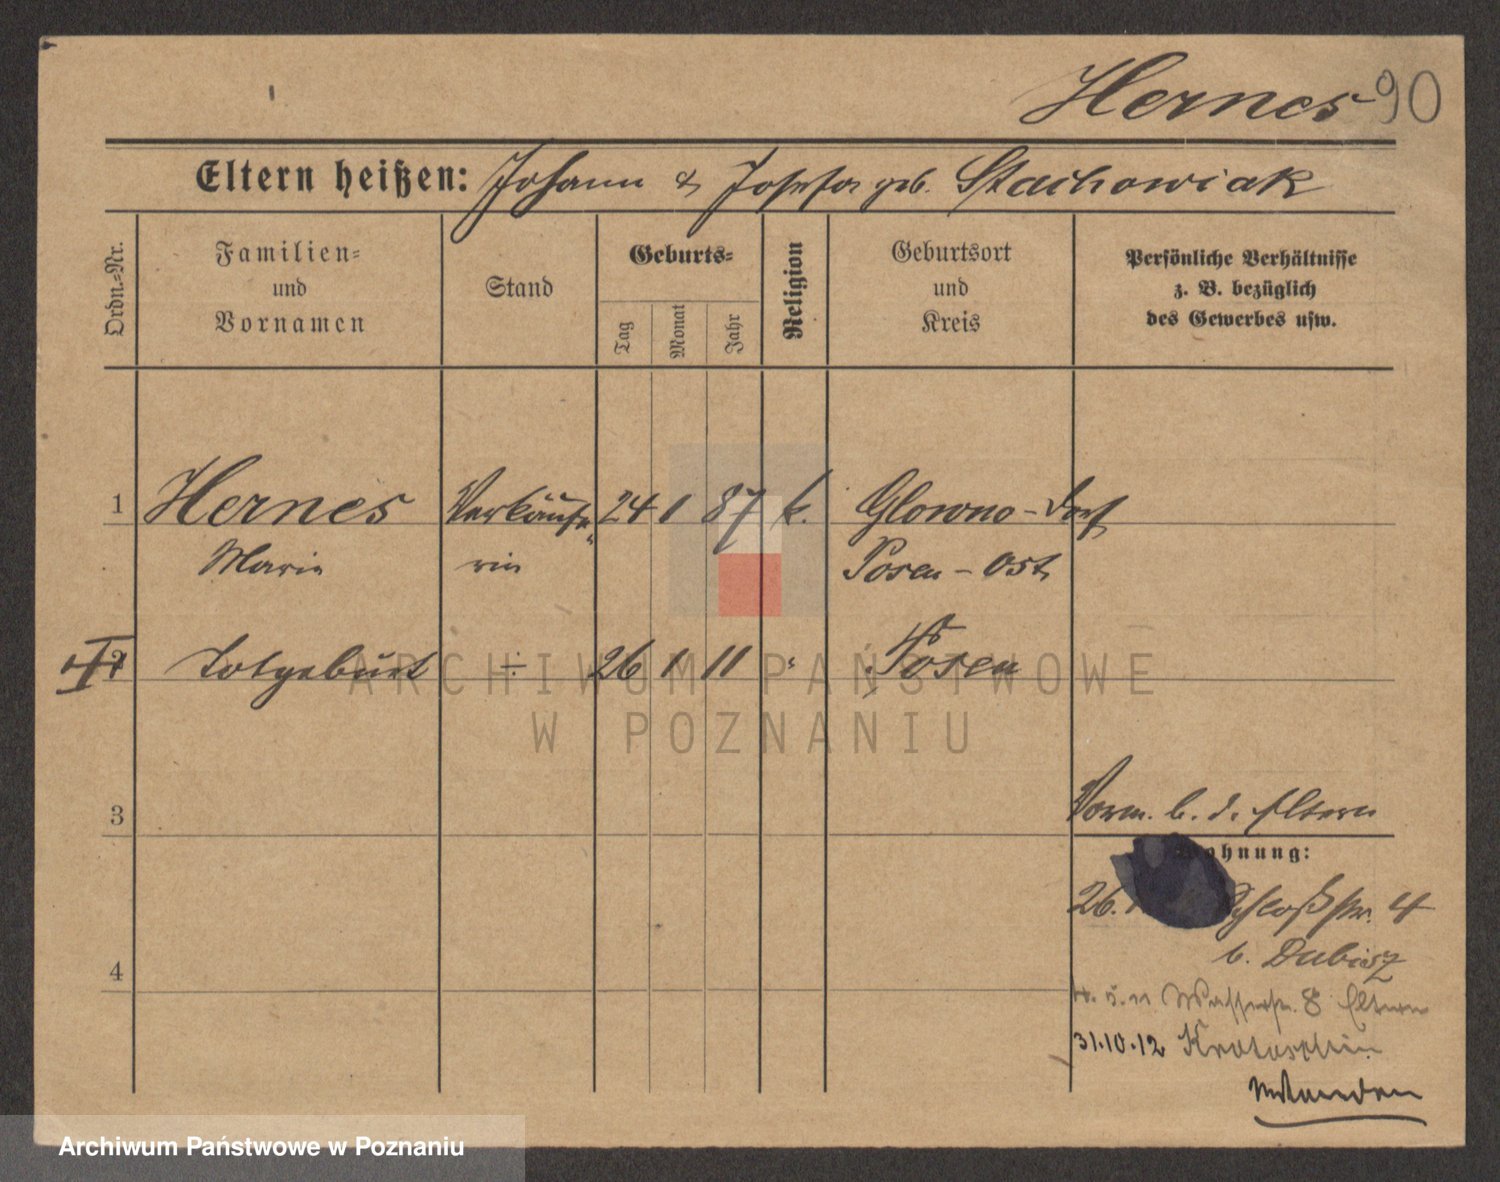 Hernes 90
Eltern heißen: Johann & Josefa geb. Stachowiak
Ordn.=Nr.
Familien=
und
Vornamen
Stand
Geburts=
Tag
Monat
Jahr
Religion
Geburtsort
und
Kreis
Persönliche Verhältnisse
z. B. bezüglich
des Gewerbes usw.
1 Hernes Verkäufe- 24 1 87 k. Glowno-Dorf
Marie rin Posen-Ost
2 Totgeburt ÷ 26 1 11 " Posen
ARCHIWUM PAŃSTWOWE
W POZNANIU
3
Vorm. b. d. Eltern
Wohnung:
26. Schloßstr. 4
b. Dubisz
4
5.11 Wasserstr. 8 Eltern
31.10.12 Krotoschin
Archiwum Państwowe w Poznaniu